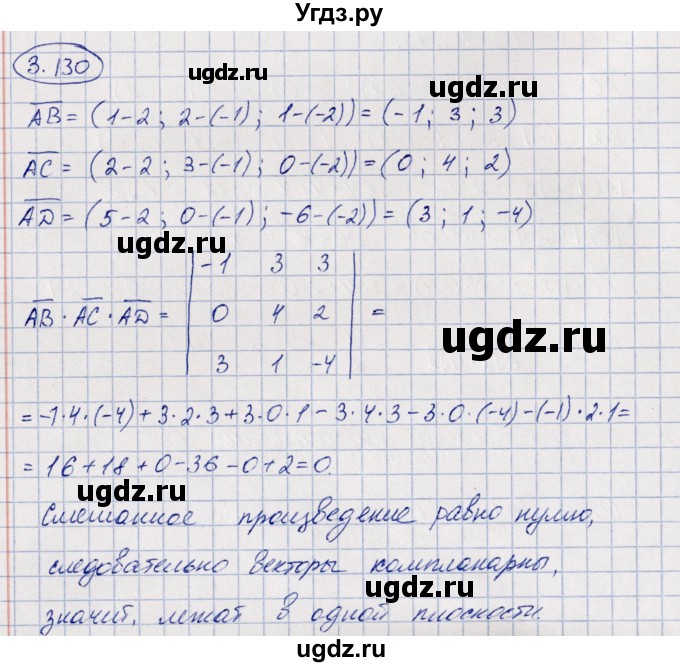 Угдз.ру
3.130
ugdz.ru
ugdz.ru
AB = (1-2; 2-(-1); 1-(-2)) = (-1; 3; 3)
AC = (2-2; 3-(-1); 0-(-2)) = (0; 4; 2)
AD = (5-2; 0-(-1); -6-(-2)) = (3; 1; -4)
ugdz.ru
-1 3 3
AB · AC · AD = 0 4 2 =
ugdz.ru
3 1 -4
= -1·4·(-4) + 3·2·3 + 3·0·1 - 3·4·3 - 3·0·(-4) - (-1)·2·1 =
= 16 + 18 + 0 - 36 - 0 + 2 = 0.
ugdz.ru
ugdz.ru
Смешанное произведение равно нулю,
следовательно векторы компланарны,
ugdz.ru
значит, лежат в одной плоскости.
ugdz.ru
ugdz.ru